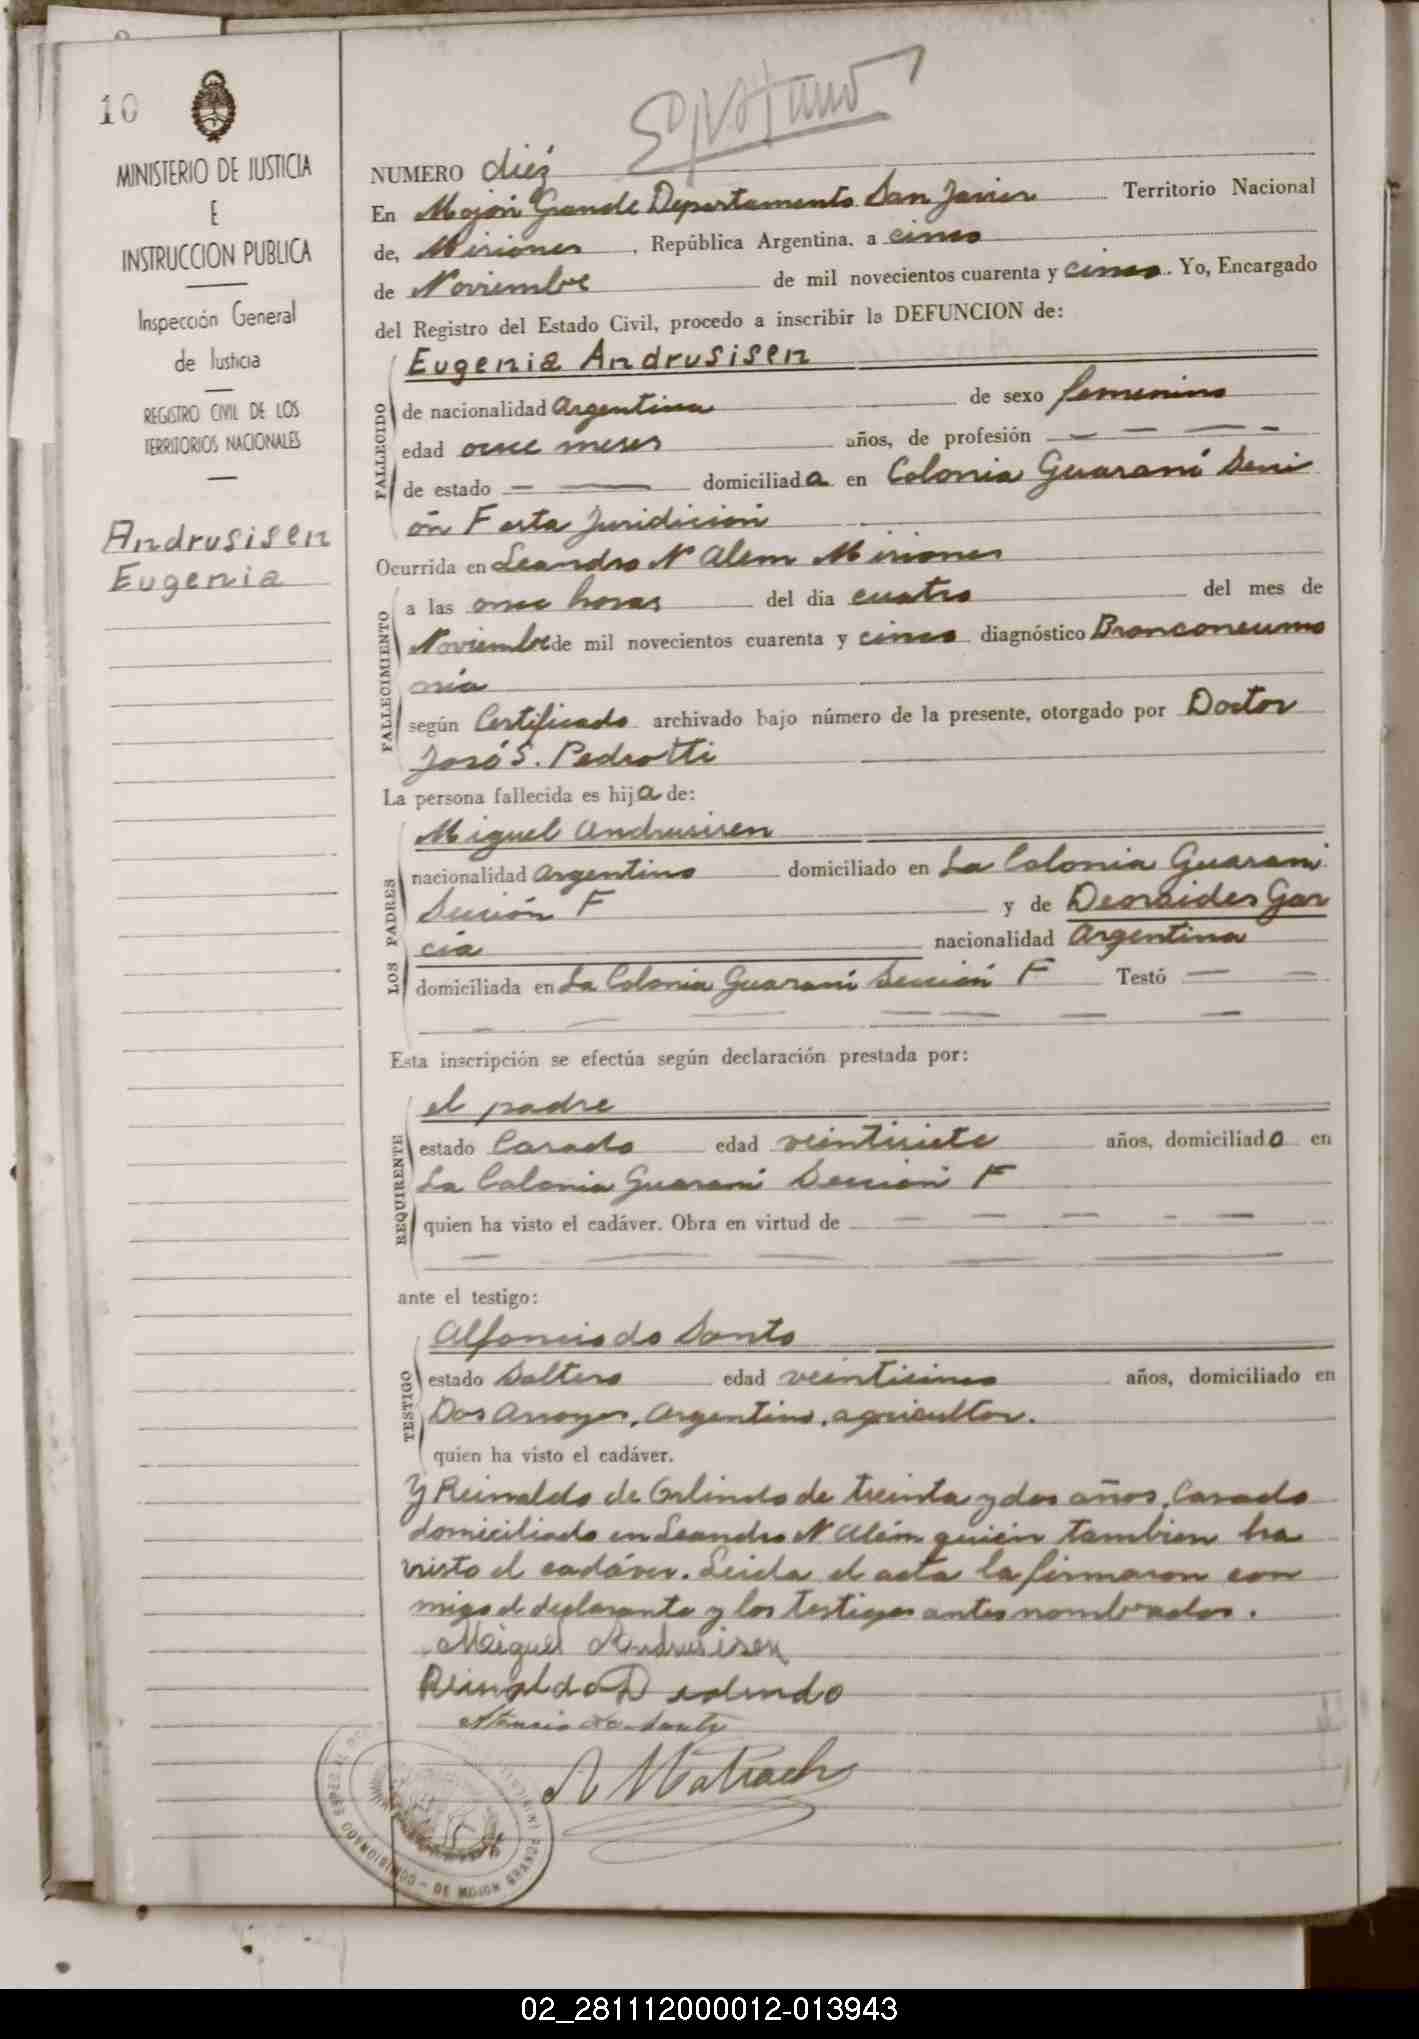 10
MINISTERIO DE JUSTICIA
E
INSTRUCCION PUBLICA
Inspección General
de Justicia
REGISTRO CIVIL DE LOS
TERRITORIOS NACIONALES
Andrusisen
Eugenia
NUMERO diéz
En Mojón Grande Departamento San Javier Territorio Nacional
de, Misiones, República Argentina, a cinco
de Noviembre de mil novecientos cuarenta y cinco. Yo, Encargado
del Registro del Estado Civil, procedo a inscribir la DEFUNCION de:
Eugenia Andrusisen
FALLECIDO
de nacionalidad Argentina de sexo femenino
edad once meses años, de profesión — — — -
de estado — — domiciliada en Colonia Guaraní Secci
ón F esta Juridición
Ocurrida en Leandro N Alem Misiones
FALLECIMIENTO
a las once horas del día cuatro del mes de
Noviembre de mil novecientos cuarenta y cinco diagnóstico Bronconeumo
nía
según Certificado archivado bajo número de la presente, otorgado por Doctor
José S. Pedrotti
La persona fallecida es hija de:
LOS PADRES
Miguel Andrusisen
nacionalidad Argentino domiciliado en La Colonia Guaraní
Sección F y de Deoraides Gar
cía nacionalidad Argentina
domiciliada en La Colonia Guaraní Sección F Testó — —
Esta inscripción se efectúa según declaración prestada por:
REQUIRENTE
el padre
estado Casado edad veintisiete años, domiciliado en
La Colonia Guaraní Sección F
quien ha visto el cadáver. Obra en virtud de — — — - —
ante el testigo:
TESTIGO
Alfonciodo Santo
estado Soltero edad veinticinco años, domiciliado en
Dos Arroyos, Argentino, agricultor.
quien ha visto el cadáver.
Y Reinaldo de Orlindo de treinta y dos años, Casado
domiciliado en Leandro N Além quién tambien ha
visto el cadáver. Leida el acta la firmaron con
migo el declarante y los testigos antes nombrados.
Miguel Andrusisen
Reinaldo D
02_281112000012-013943